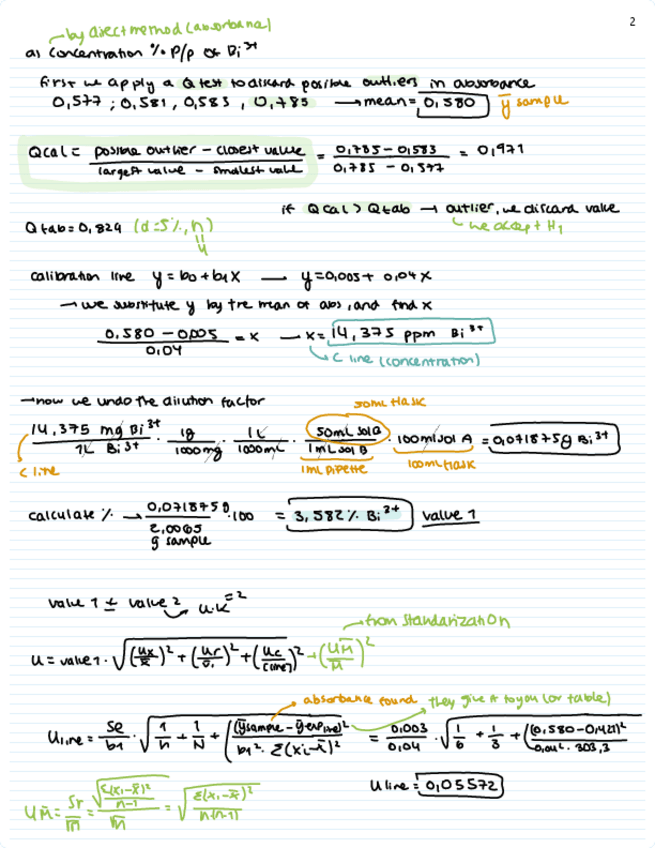 2
by direct method (absorbance)
a) concentration % P/p of Bi³⁺
first we apply a Q test to discard possible outliers in absorbance
0,577 ; 0,581 , 0,583 , 0,785 → mean = 0,580 ȳ sample
Qcal = (possible outlier − closest value) / (largest value − smallest value) = (0,785 − 0,583) / (0,785 − 0,577) = 0,971
if Qcal > Qtab → outlier, we discard value
Qtab = 0,829 (α=5%, n)
4
we accept H₁
calibration line y = b₀ + b₁x — y = 0,005 + 0,04x
→ we substitute y by the mean of abs, and find x
(0,580 − 0,005) / 0,04 = x → x = 14,375 ppm Bi³⁺
C line (concentration)
→ now we undo the dilution factor
50mL flask
14,375 mg Bi³⁺ / 1L Bi³⁺ · 1g / 1000mg · 1L / 1000mL · 50mL sol B / 1mL sol B · 100ml sol A = 0,071875g Bi³⁺
C line
1mL pipette
100mL flask
calculate % → 0,071875g / 2,0065 · 100 = 3,582% Bi³⁺ value 1
g sample
value 1 ± value 2
u·k =2
from standarization
u = value 1 · √((ux/x̄)² + (ur/)² + (uc/Cline)² + (uM̄/M̄)²)
absorbance found
they give it to you (or table)
Uline = Se/b₁ · √(1/n + 1/N + (ȳsample − ȳexp line)² / (b₁² · Σ(xi − x̄)²)) = 0,003/0,04 · √(1/6 + 1/3 + (0,580 − 0,421)² / (0,04² · 303,3))
U line = 0,05572
UM̄ = Sr/√n = √(Σ(xi − x̄)²/(n−1)) / √n = √(Σ(xi − x̄)² / n(n−1))